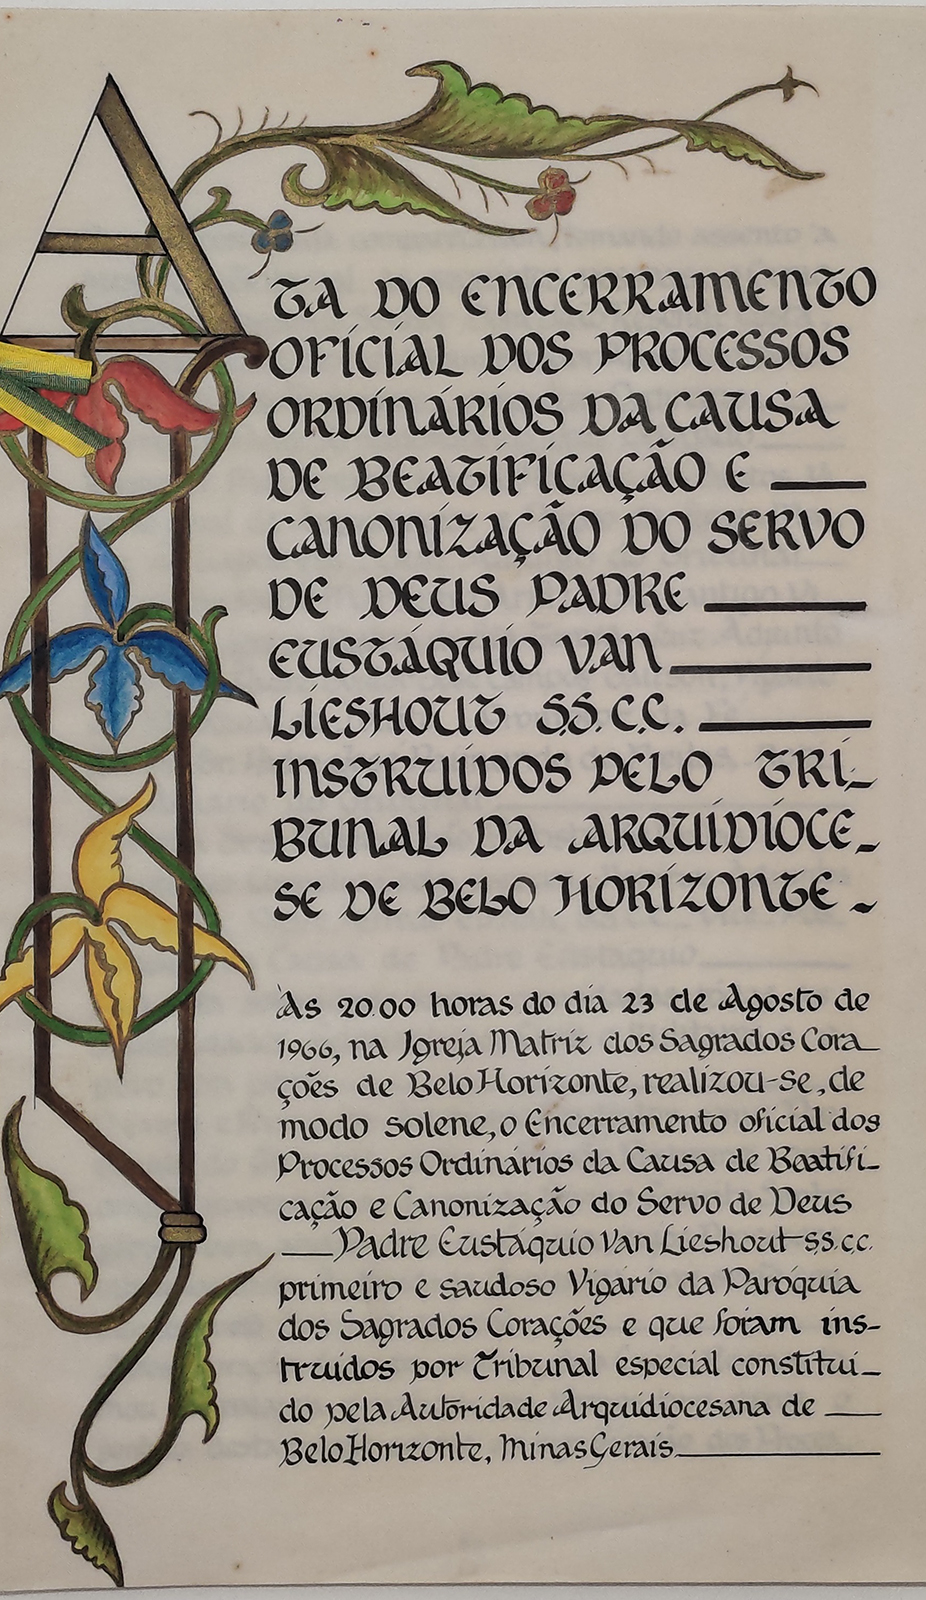 ATA DO ENCERRAMENTO
OFICIAL DOS PROCESSOS
ORDINÁRIOS DA CAUSA
DE BEATIFICAÇÃO E
CANONIZAÇÃO DO SERVO
DE DEUS PADRE
EUSTÁQUIO VAN
LIESHOUT SS.C.C.
INSTRUIDOS PELO TRI-
BUNAL DA ARQUIDIOCE-
SE DE BELO HORIZONTE-
Às 20.00 horas do dia 23 de Agosto de
1966, na Igreja Matriz dos Sagrados Cora_
ções de Belo Horizonte, realizou-se, de
modo solene, o Encerramento oficial dos
Processos Ordinários da Causa de Beatifi_
cação e Canonização do Servo de Deus
Padre Eustáquio Van Lieshout ss.cc.
primeiro e saudoso Vigário da Paróquia
dos Sagrados Corações e que foram ins-
truidos por Tribunal especial constitui_
do pela Autoridade Arquidiocesana de
Belo Horizonte, Minas Gerais